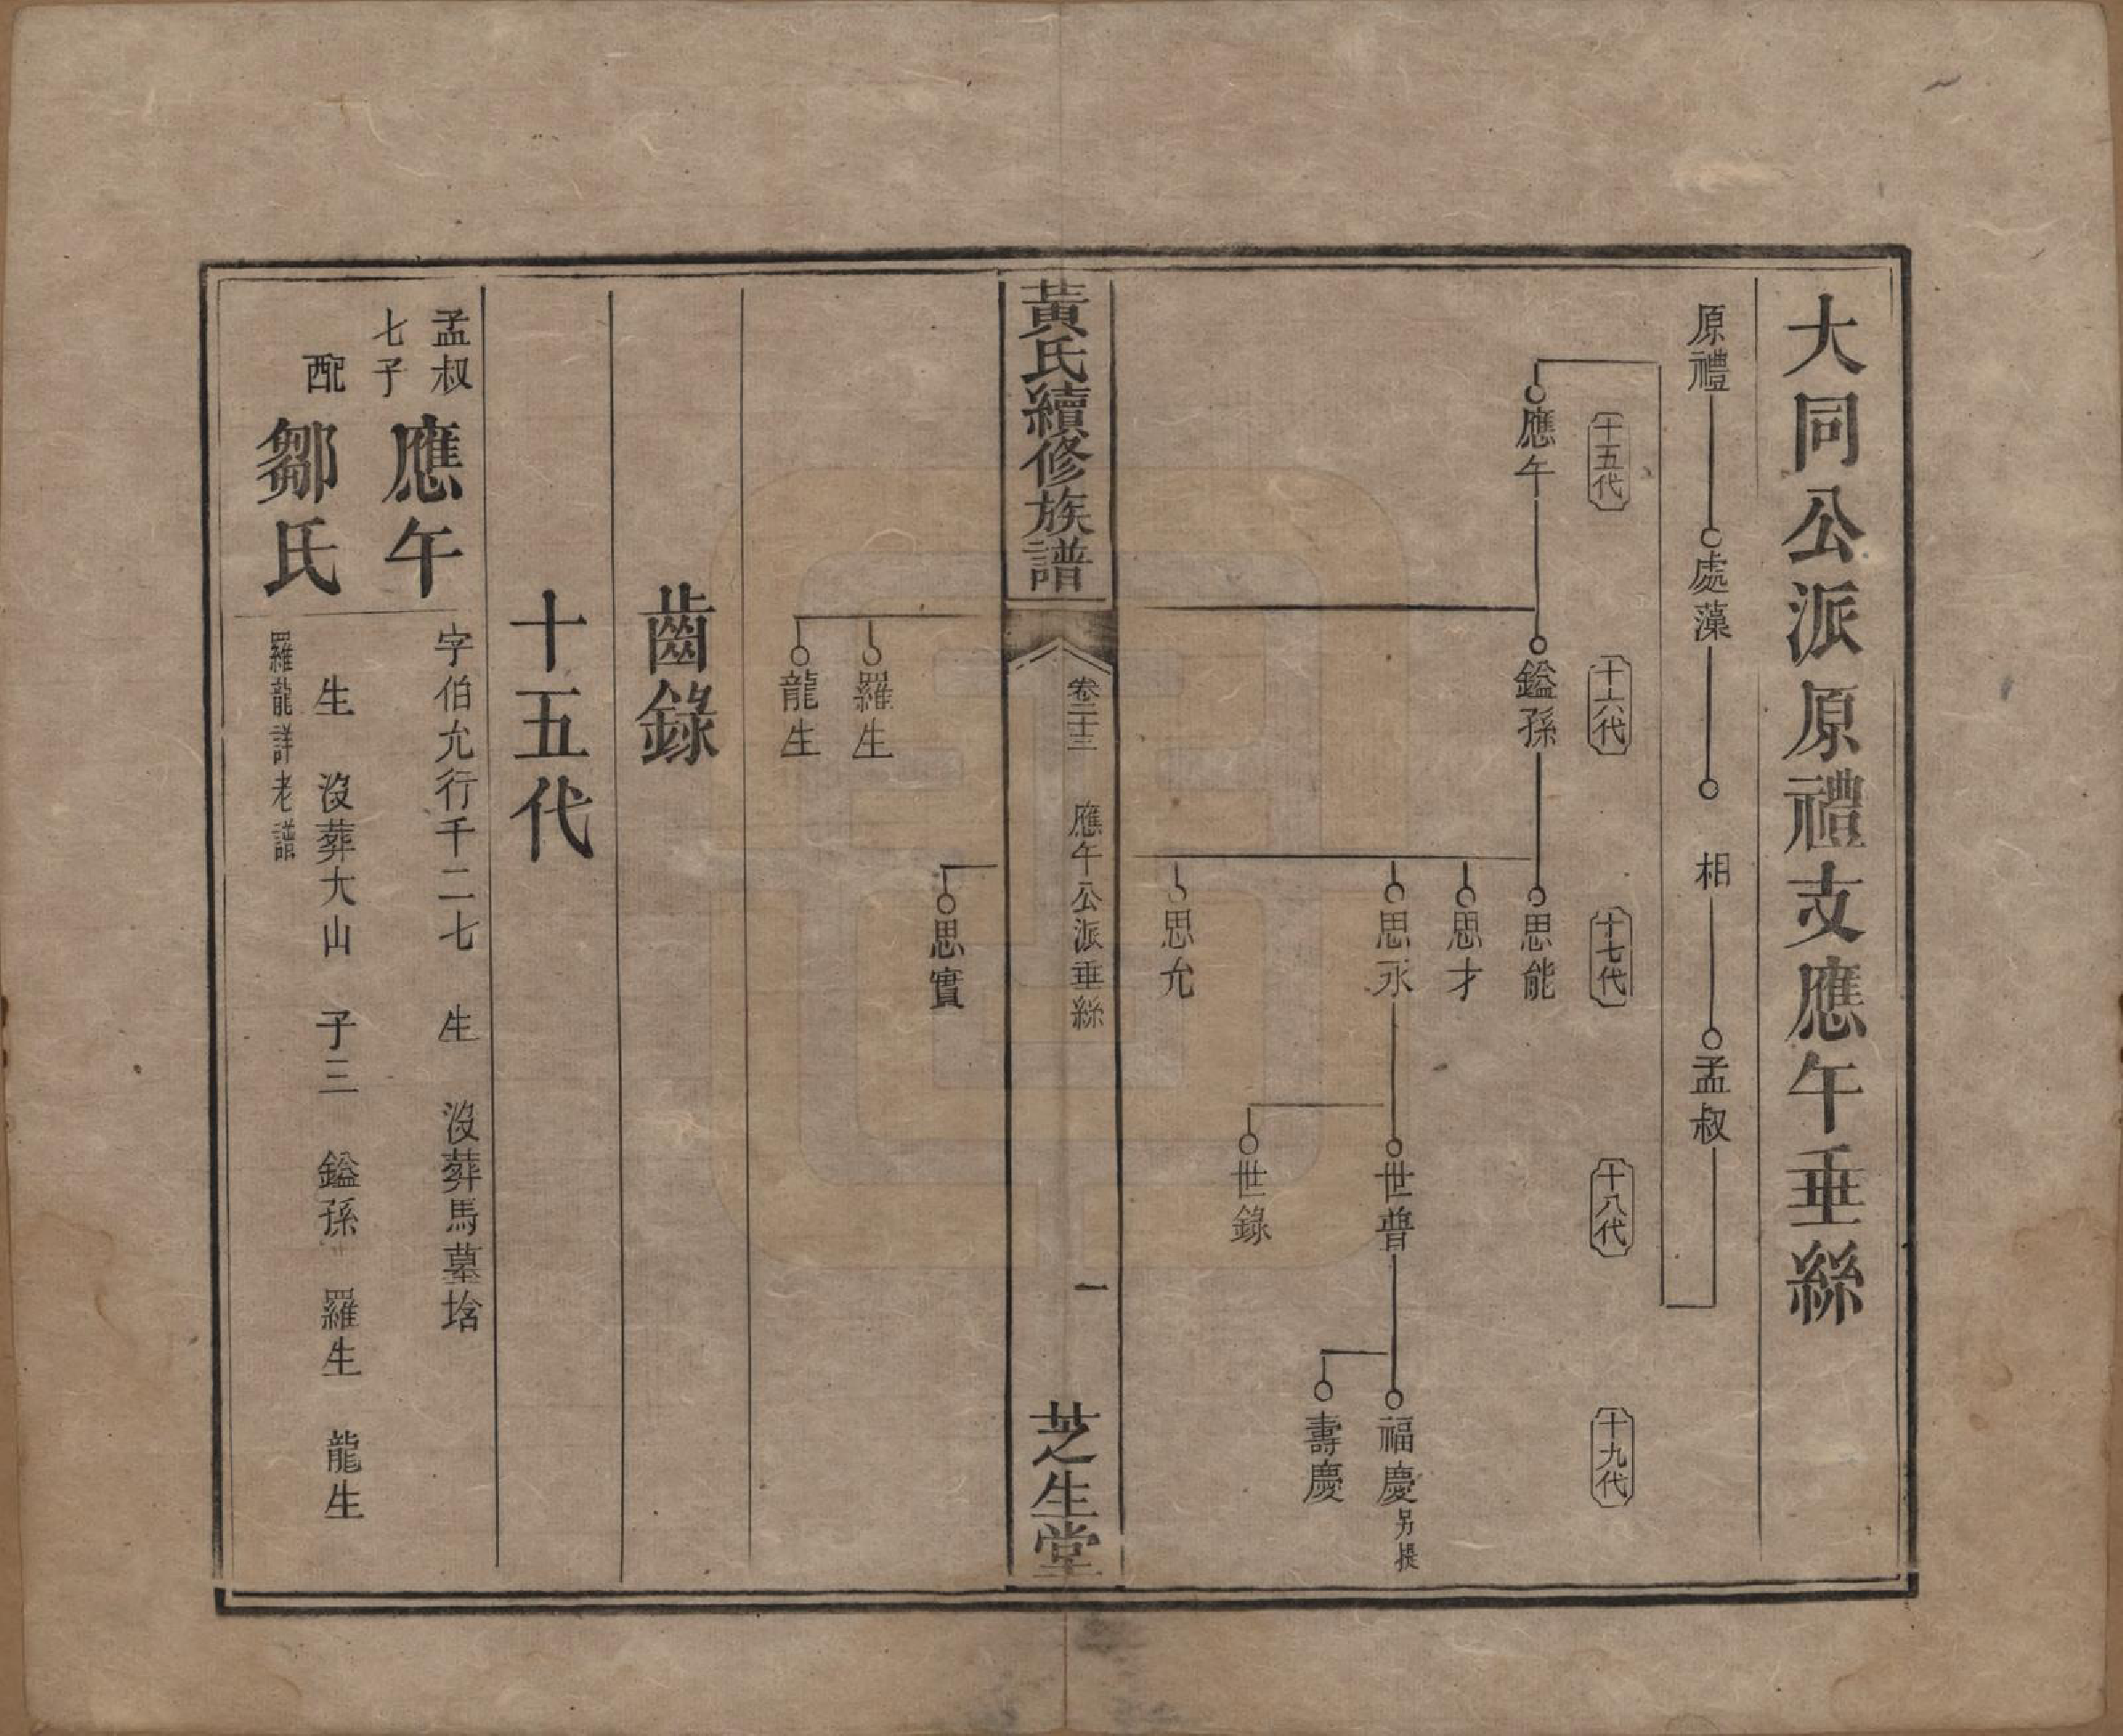 大同公派原禮支應午垂絲
原禮 處藻 相 孟叔
十五代 十六代 十七代 十八代 十九代
應午 鎰孫 思能
思才
思永 世普 福慶 另提
壽慶
世錄
思允
黃氏續修族譜 卷二十三 應午公派垂絲 一 芝生堂
思實
羅生
龍生
齒錄
十五代
孟叔七子 應午 字伯允行千二七 生 沒葬馬墓㙮
配 鄒氏 生 沒葬大山 子三 鎰孫 羅生 龍生
羅龍詳老譜